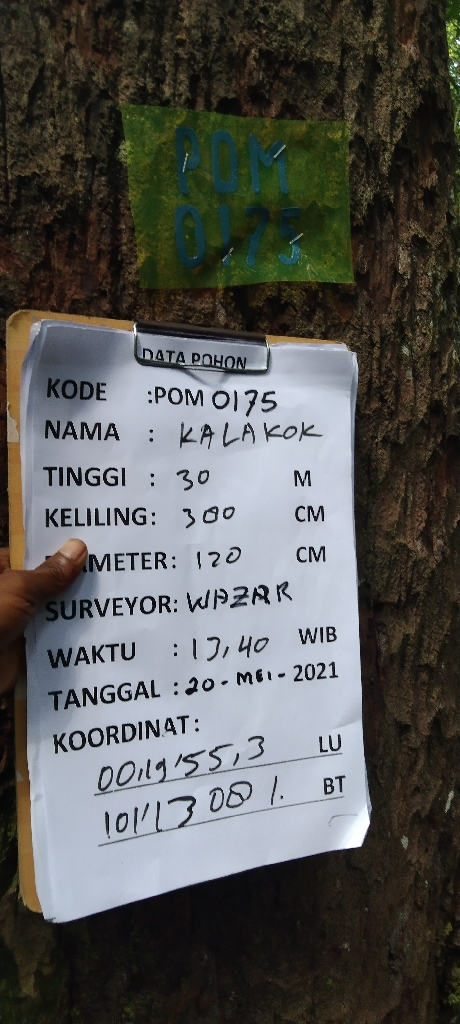 POM
0175
DATA POHON
KODE :POM 0175
NAMA : KALAKOK
TINGGI : 30 M
KELILING: 300 CM
METER: 120 CM
SURVEYOR: WAZAR
WAKTU : 13,40 WIB
TANGGAL : 20 - MEI - 2021
KOORDINAT:
00,19'55,3 LU
101'13 BT